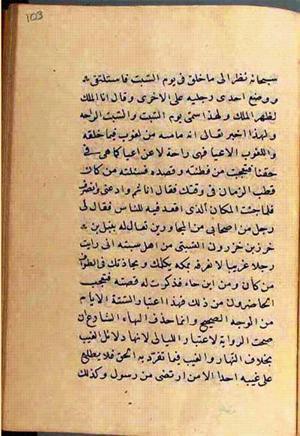 103
سبحانه نظر الى ما خلق فى يوم السبت فاستلقى
ووضع احدى رجليه على الاخرى وقال انا الملك
لظهر الملك ولهذا سمى يوم السبت والسبت الراحة
ولهذا اخبر تعالى انه ما مسه من لغوب فيما خلقه
واللغوب الاعيا فهى راحة لا عن اعيا كما هى فى
حقنا فتعجبت من فطنته وقصده فسئلته من كان
قطب الزمان فى وقتك فقال انا ثم ودعنى وانصرف
فلما جئت المكان الذى اقعد فيه للناس فقال لى
رجل من اصحابى من المجاورين يقال له نبيل بن
خزر بن خزرون السبتى من اهل سبته انى رايت
رجلا غريبا لا نعرفه بمكه يكلمك ويحادثك فى الطواف
من كان ومن اين جاء فذكرت له قصته فتعجب
الحاضرون من ذلك فهذا اعتبار الستة الايام
من الوجه الصحيح وانما حذف الهاء الشارع ان
صحت الرواية لاعتبار الليالى لانها دلائل الغيب
بخلاف النهار والغيب فيما تفرد به الحق فلا يطلع
على غيبه احدا الا من ارتضى من رسول وكذلك